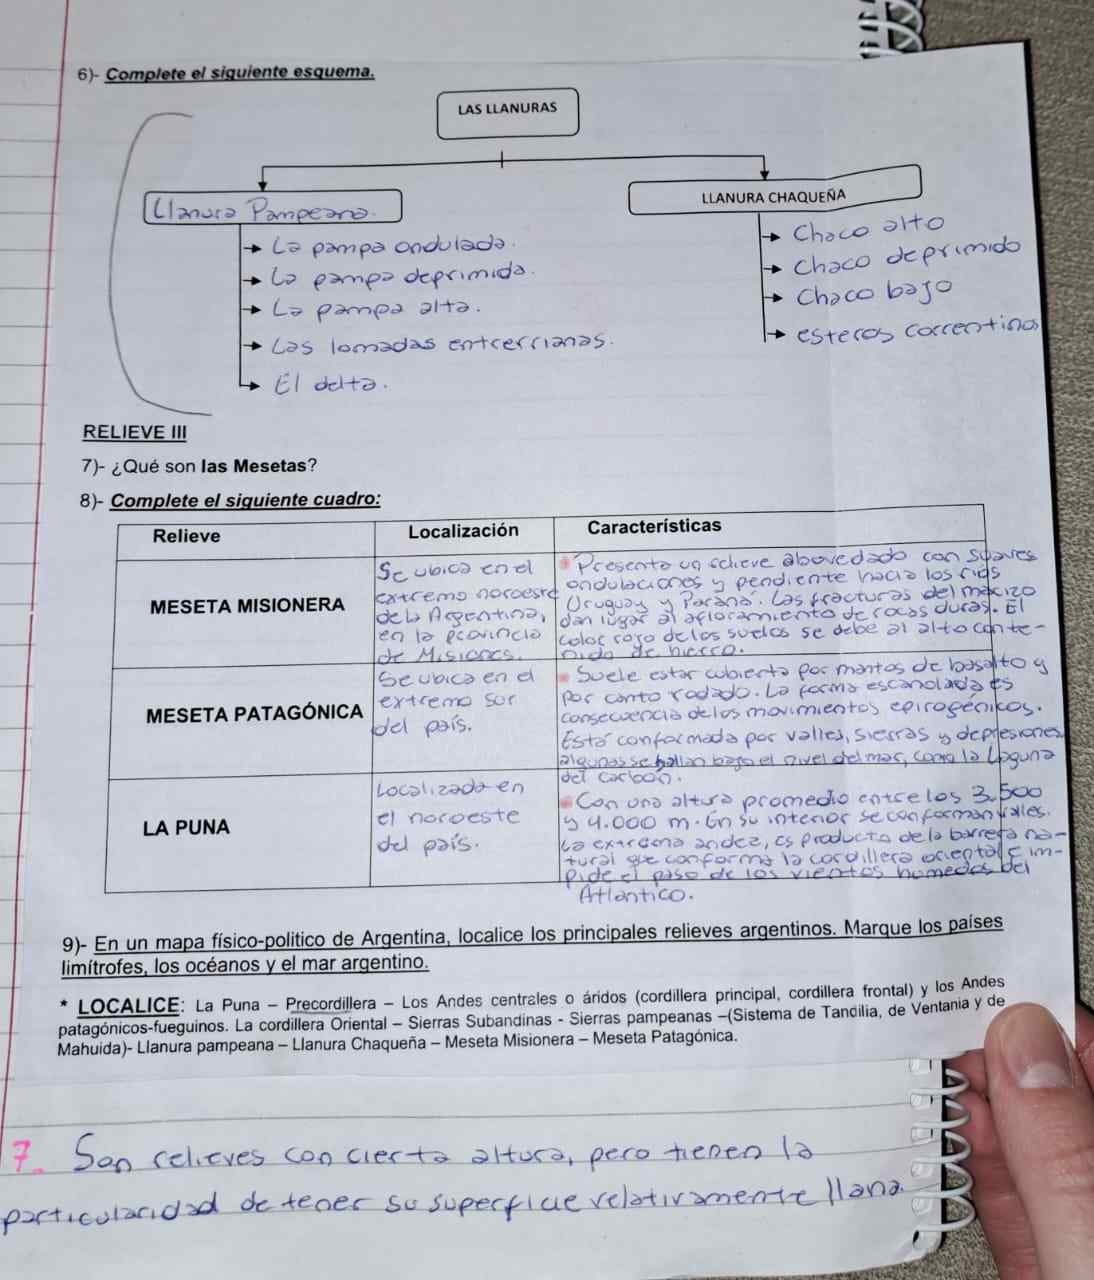 6)- Complete el siguiente esquema.
LAS LLANURAS
Llanura Pampeana.
La pampa ondulada.
La pampa deprimida.
La pampa alta.
Las lomadas entrerrianas.
El delta.
LLANURA CHAQUEÑA
Chaco alto
Chaco deprimido
Chaco bajo
esteros correntinos
RELIEVE III
7)- ¿Qué son las Mesetas?
8)- Complete el siguiente cuadro:
Relieve Localización Características
MESETA MISIONERA
Se ubica en el
extremo noroeste
de la Argentina,
en la provincia
de Misiones.
Presenta un relieve abovedado con suaves
ondulaciones y pendiente hacia los ríos
Uruguay y Paraná. Las fracturas del macizo
dan lugar al afloramiento de rocas duras. El
color rojo de los suelos se debe al alto conte-
nido de hierro.
MESETA PATAGÓNICA
Se ubica en el
extremo sur
del país.
Suele estar cubierta por mantos de basalto y
por canto rodado. La forma escanolada es
consecuencia de los movimientos epirogénicos.
Está conformada por valles, sierras y depresiones
algunas se hallan bajo el nivel del mar, como la Laguna
del carbón.
LA PUNA
Localizada en
el noroeste
del país.
Con una altura promedio entre los 3.500
y 4.000 m. En su interior se conforman valles.
La extrema aridez, es producto de la barrera na-
tural que conforma la cordillera oriental e im-
pide el paso de los vientos humedos del
Atlántico.
9)- En un mapa físico-politico de Argentina, localice los principales relieves argentinos. Marque los países
limítrofes, los océanos y el mar argentino.
* LOCALICE: La Puna – Precordillera – Los Andes centrales o áridos (cordillera principal, cordillera frontal) y los Andes
patagónicos-fueguinos. La cordillera Oriental – Sierras Subandinas - Sierras pampeanas –(Sistema de Tandilia, de Ventania y de
Mahuida)- Llanura pampeana – Llanura Chaqueña – Meseta Misionera – Meseta Patagónica.
7. Son relieves con cierta altura, pero tienen la
particularidad de tener su superficie relativamente llana